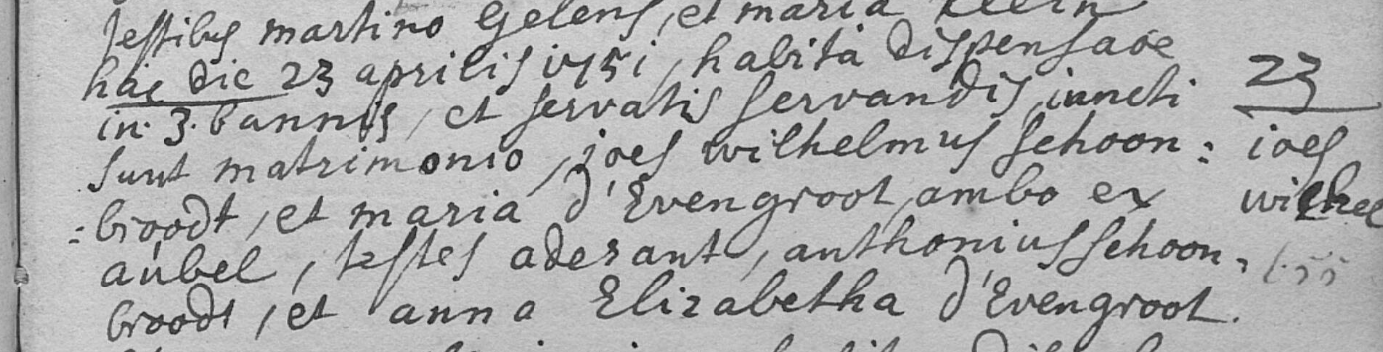 testibus martino Gelens, et maria Klein
hac die 23 aprilis 1751, habita dispensaõe
in 3. bannis, et servatis servandis, iuncti
sunt matrimonio, joes wilhelmus schoon:
=broodt, et maria d'Evengroot, ambo ex
aubel, testes aderant, anthonius schoon,
broodt, et anna Elizabetha d'Evengroot.
23
ioes
wilhel